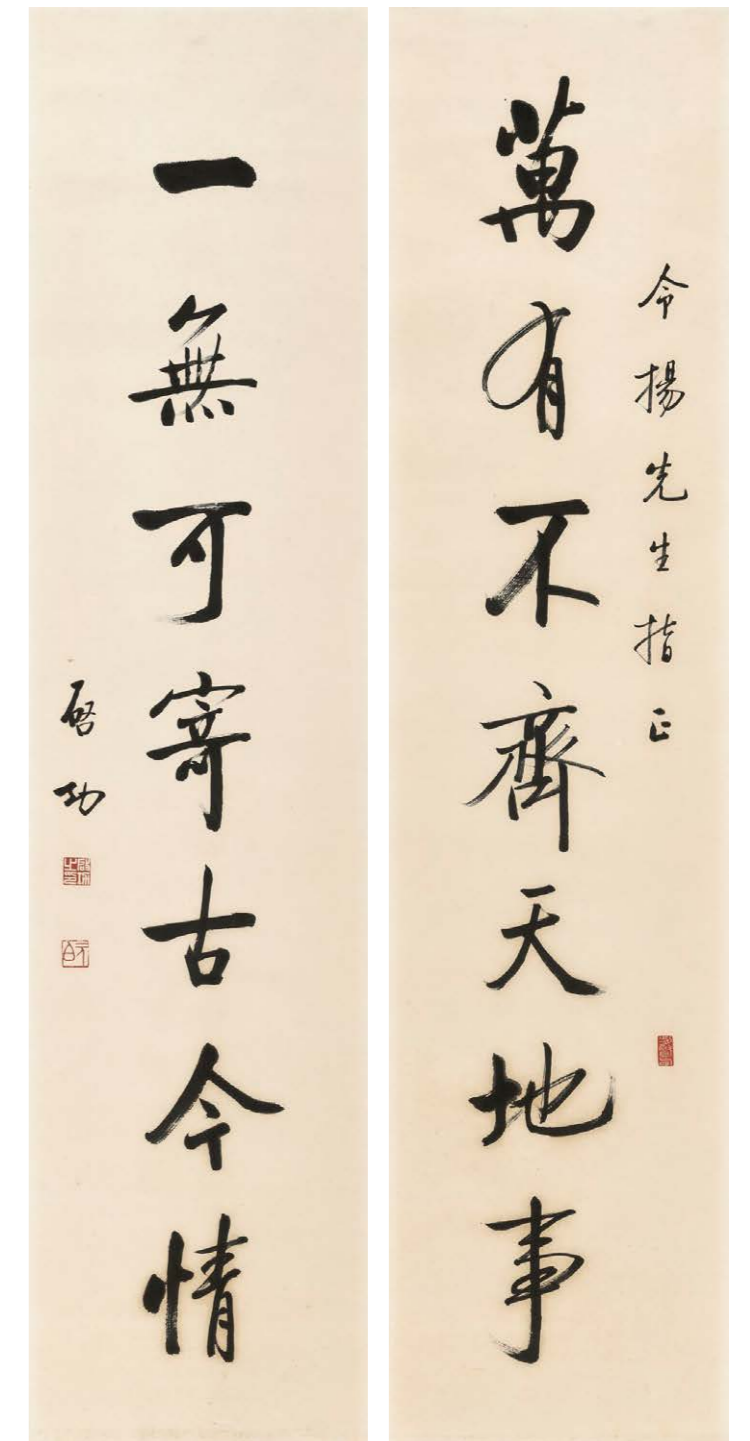 令揚先生指正
萬有不齊天地事
一無可寄古今情
啓功